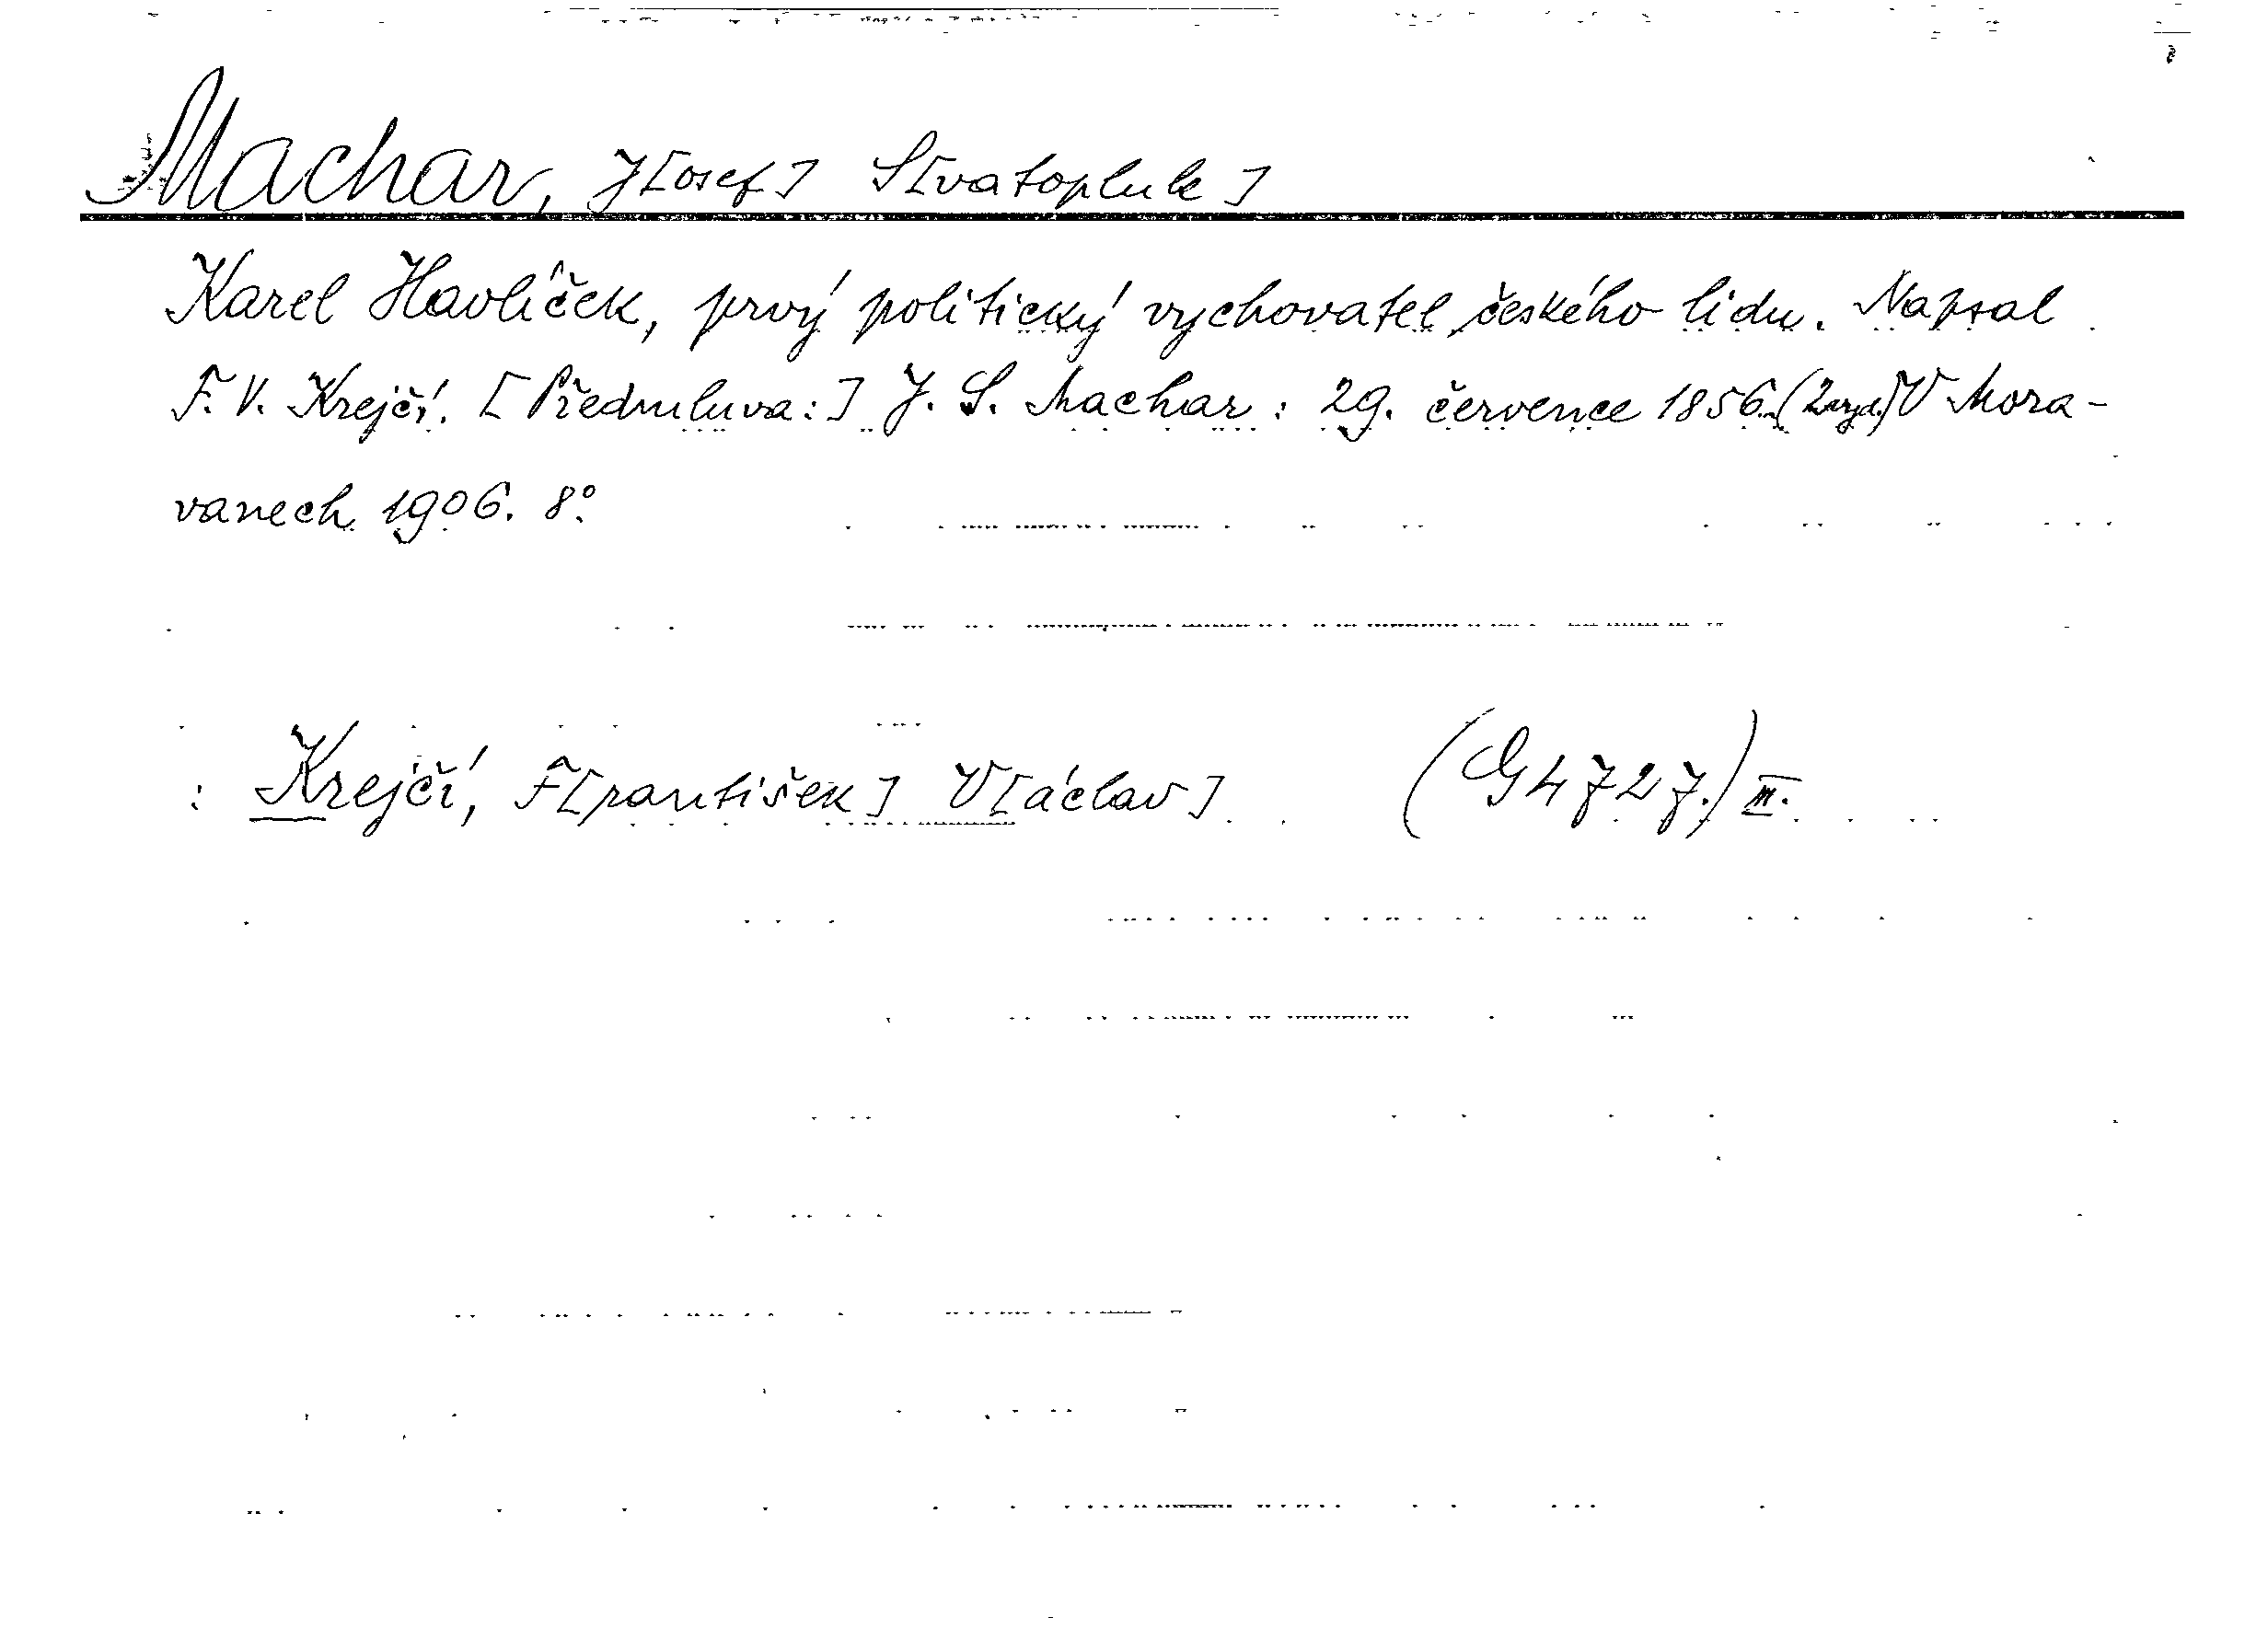 Machar, J[osef] S[vatopluk]
Karel Havlíček, prvý politický vychovatel českého lidu. Napsal
F. V. Krejčí. [Předmluva:] J. S. Machar: 29. července 1856. (2.vyd.) V Mora-
vanech 1906. 8°.
: Krejčí, F[rantišek] V[áclav] (G 4727.) III.